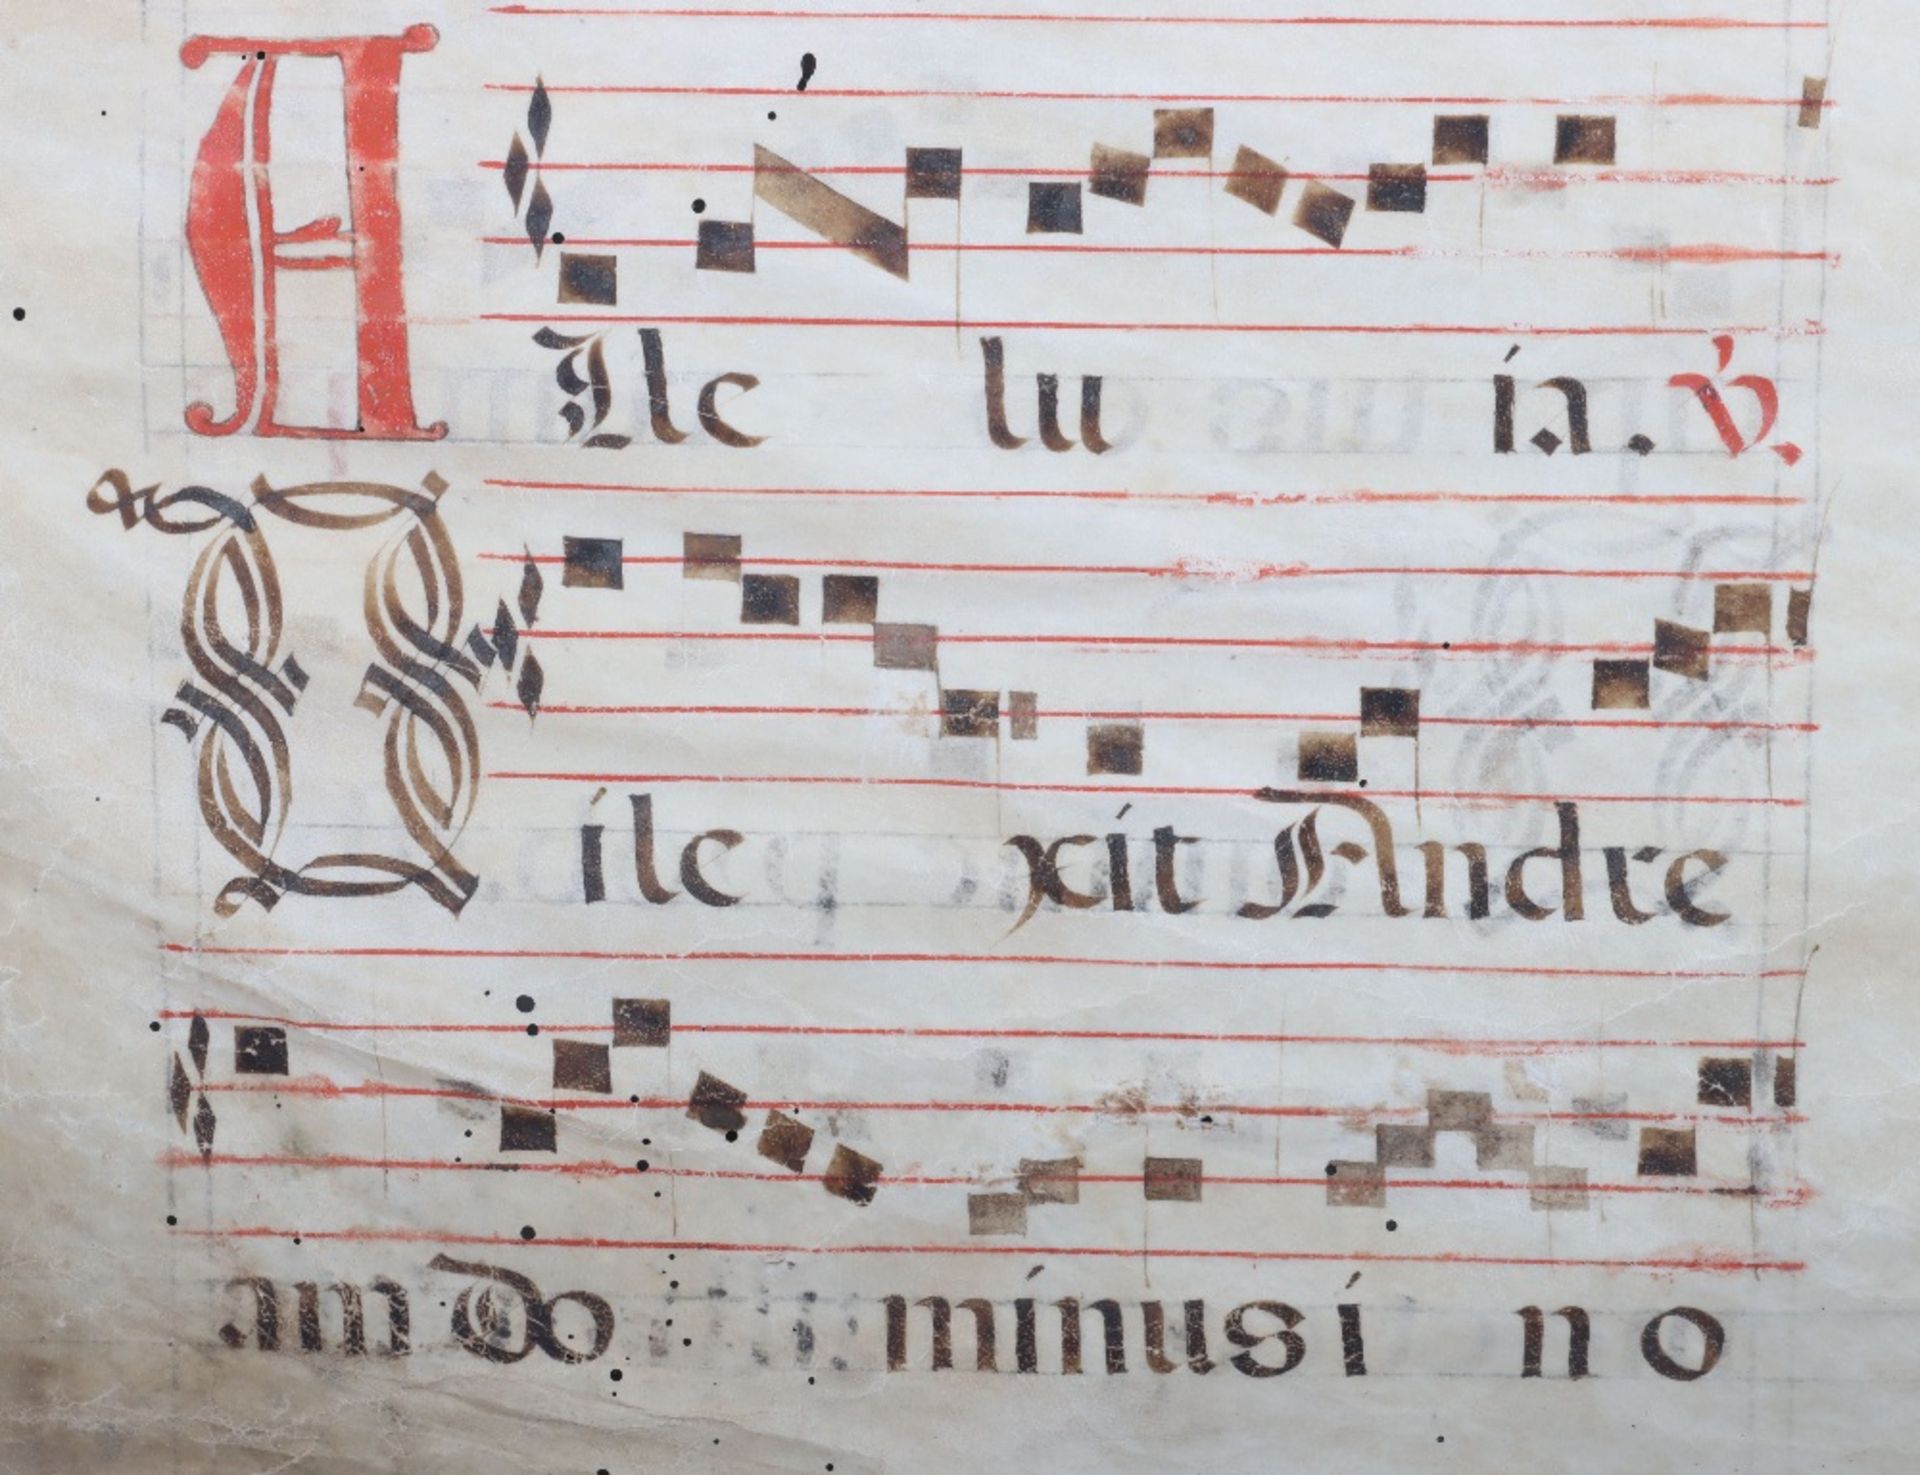 A Lle lu ia. ℣.
D ile xit Andre
am do minus i n o